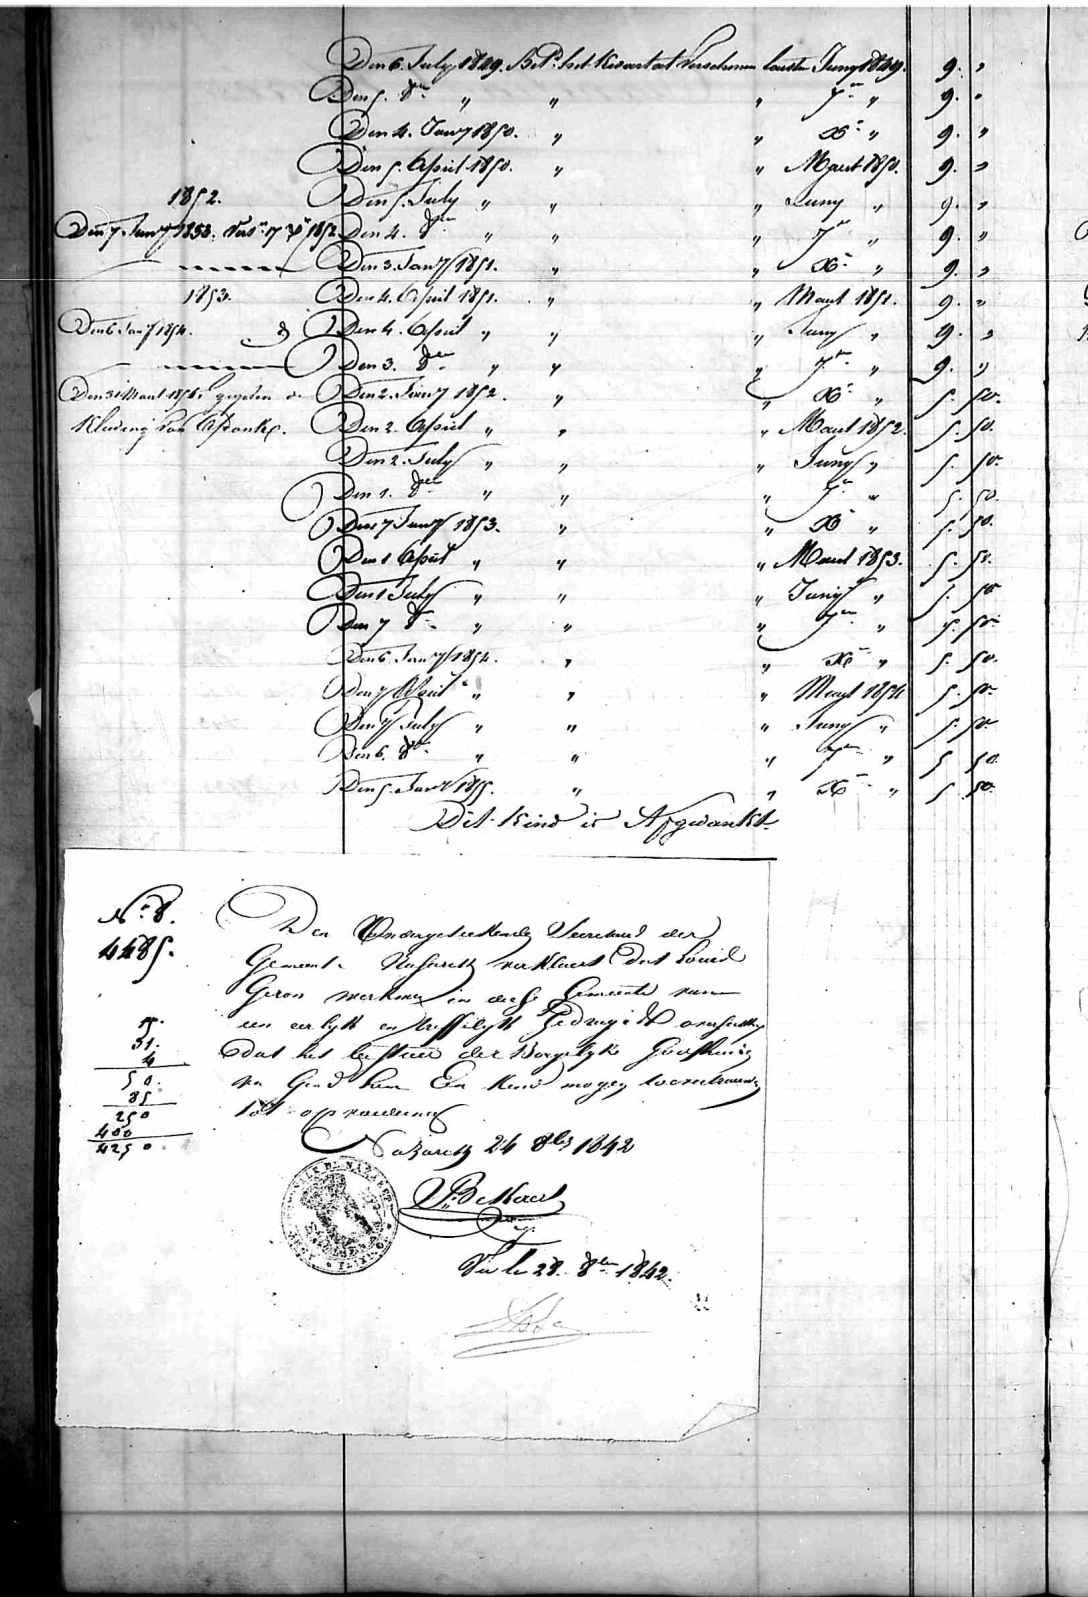 Den 6. July 1849. Bet. het Kwartaal Verschenen laaste Juny 1849. 9. "
Den 5. 8ber " " " 7ber " 9. "
Den 4. Jany 1850. " " Xr " 9. "
Den 5. April 1850. " " Maert 1850. 9. "
1852.
Den 5. July " " " Juny " 9. "
Den 7 Jany 1853. 17 Xr 1852
Den 4. 8ber " " " 7ber " 9. "
Den 3. Jany 1851. " " Xr " 9. "
1853.
Den 4. April 1851. " " Maert 1851. 9. "
Den 6 Jany 1854.
Den 4. April " " " Juny " 9. "
Den 3. 8ber " " " 7ber " 9. "
Den 31 Maert 1856 gegeven de
Den 2. Jany 1852. " " Xr " 5. 50.
Kleeding van
Den 2. April " " " Maert 1852. 5. 50.
Den 2. July " " " Juny " 5. 50.
Den 1. 8ber " " " 7ber " 5. 50.
Den 7 Jany 1853. " " Xr " 5. 50.
Den 1 April " " " Maert 1853. 5. 50.
Den 1 July " " " Juny " 5. 50
Den 7 8ber " " " 7ber " 5. 50
Den 6. Jany 1854. " " Xr " 5. 50.
Den 7 April " " " Maert 1854 5. 50
Den 7 July " " " Juny " 5. 50
Den 6. 8ber " " " 7ber " 5 50.
Den 5. Jany 1855. " " Xr " 5. 50.
Dit Kind is Afgedankt
No. 8.
4485.
Den Ondergeteekende Secretaris der
Gemeente Nazareth verklaert dat Louis
Geron werkman in deze Gemeente van
een eerlyk en treffelyk Gedrag is
dat het bestuer der Borgelyke Godshuizen
van Gend hem Een kind mogen toevertrouwen
tot opvoeding
51.
4
50.
85
250
400
4250
Nazareth 24 8ber 1842
Vu le 28. 8ber 1842.